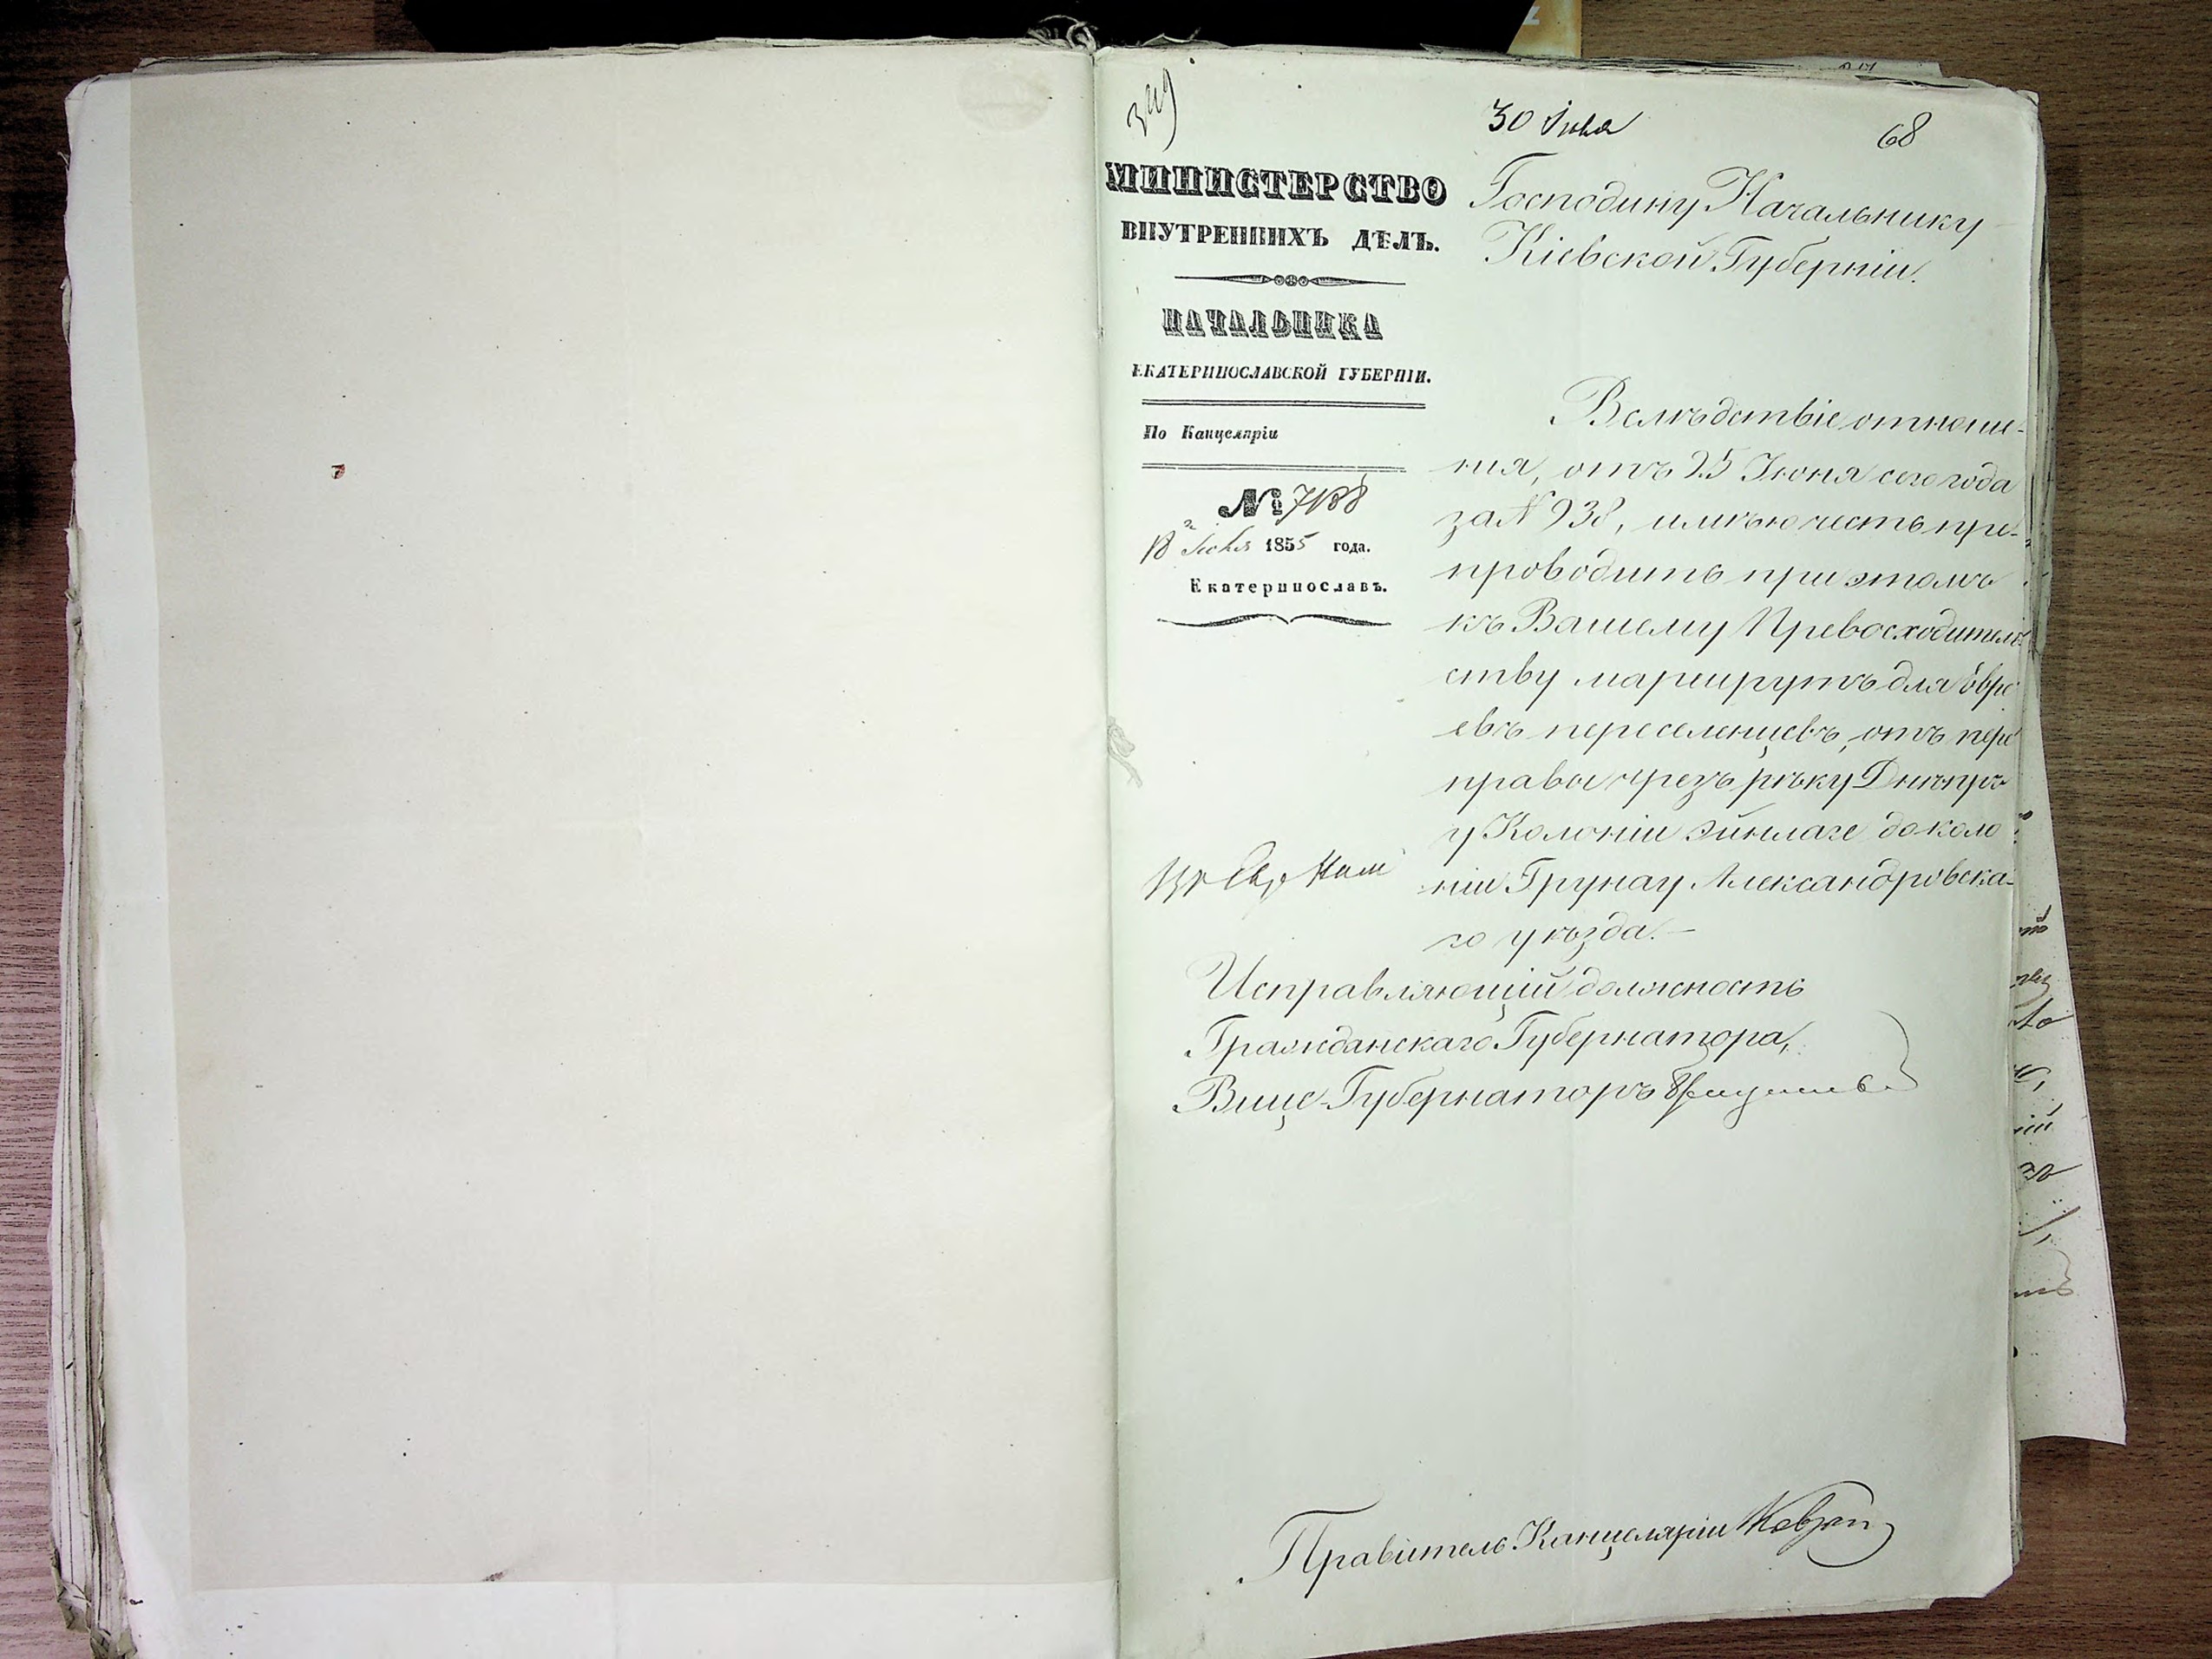 349
30 Іюля
68
МИНИСТЕРСТВО
ВНУТРЕННИХЪ ДѢЛЪ.
НАЧАЛЬНИКА
ЕКАТЕРИНОСЛАВСКОЙ ГУБЕРНІИ.
По Канцеляріи
№ 7188
18 Іюля 1855 года.
Екатеринославъ.
Господину Начальнику
Кіевской Губерніи.
Вслѣдствіе отноше-
нія, отъ 25 Іюня сего года
за № 938, имѣю честь пре-
проводить при этомъ
къ Вашему Превосходитель
ству маршрутъ для Евре
евъ переселенцевъ, отъ пере
правы чрезъ рѣку Днѣпръ
у Колоніи Эйнлаге до коло
ніи Грунау Александровска-
го уѣзда.-
Исправляющій должность
Гражданскаго Губернатора,
Вице-Губернаторъ
Правитель Канцеляріи